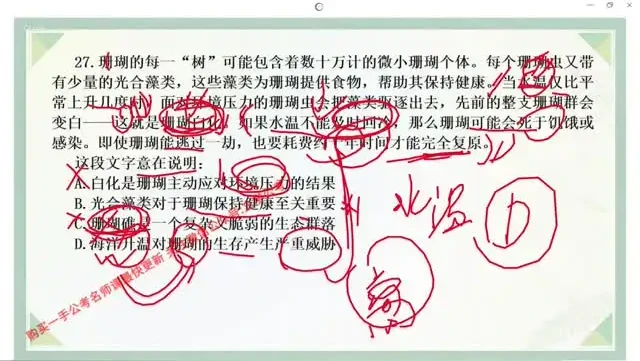 27. 珊瑚的每一“树”可能包含着数十万计的微小珊瑚个体。每个珊瑚虫又带
有少量的光合藻类，这些藻类为珊瑚提供食物，帮助其保持健康。当水温仅比平
常上升几度时，面对环境压力的珊瑚虫会把藻类驱逐出去，先前的整支珊瑚群会
变白——这就是珊瑚白化。如果水温不能及时回冷，那么珊瑚可能会死于饥饿或
感染。即使珊瑚能逃过一劫，也要耗费约十年时间才能完全复原。
这段文字意在说明：
A. 白化是珊瑚主动应对环境压力的结果
B. 光合藻类对于珊瑚保持健康至关重要
C. 珊瑚礁是一个复杂又脆弱的生态群落
D. 海洋升温对珊瑚的生存产生严重威胁
水温
D
购买一手公考名师课最快更新